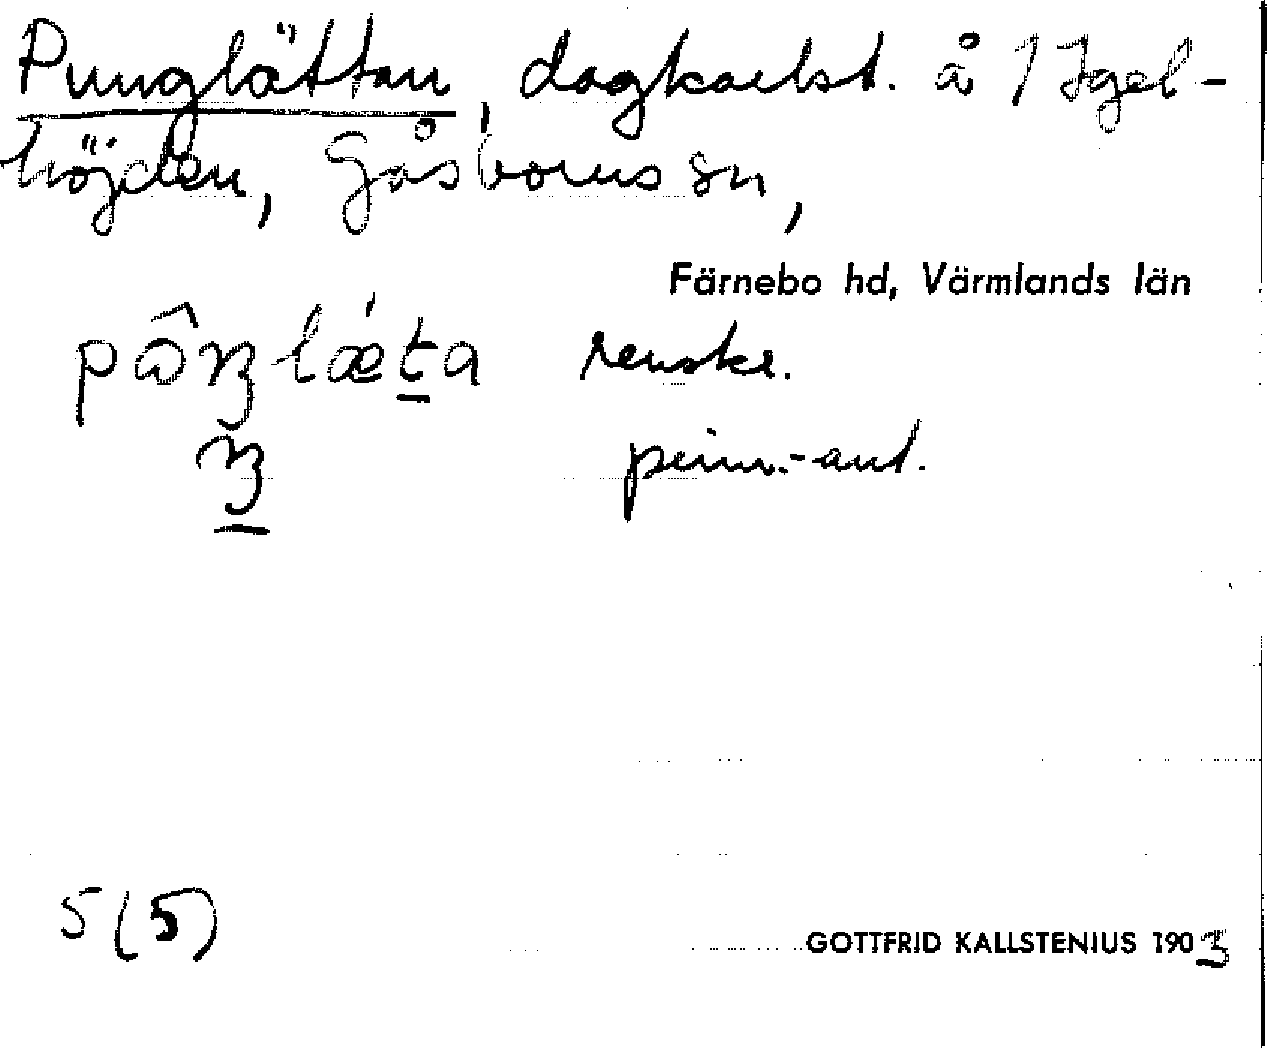 Punglättan, dagkarlst. å 1 Igel-
höjden, Gåsborns sn,
Färnebo hd, Värmlands län
renskr.
penn.-ant.
5 (5)
GOTTFRID KALLSTENIUS 1903